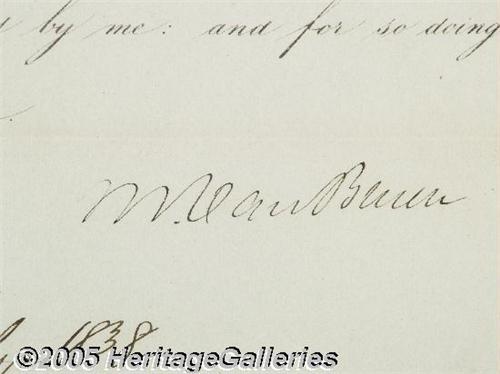 by me: and for so doing
M. Van Buren
1838
©2005 HeritageGalleries